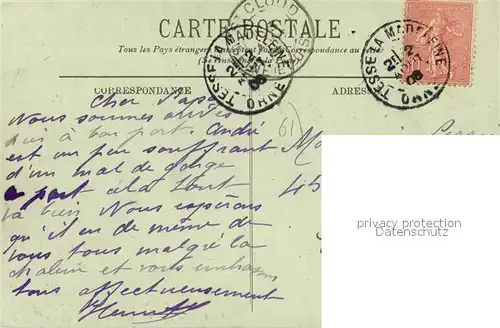 CARTE POSTALE
Tous les Pays étrangers n'acceptent pas la Correspondance au recto.
CORRESPONDANCE
ADRES
TESSÉ LA MADELEINE
ORNE
ST CLOUD
TESSÉ LA MADELEINE
ORNE
61
Cher Papa
Nous sommes arrivés
à bon port. André
est un peu souffrant
d'un mal de gorge
à part cela tout
va bien Nous espérons
qu'il en de même de
vous tous malgré la
chaleur et vous embrassons
tous affectueusement
privacy protection
Datenschutz